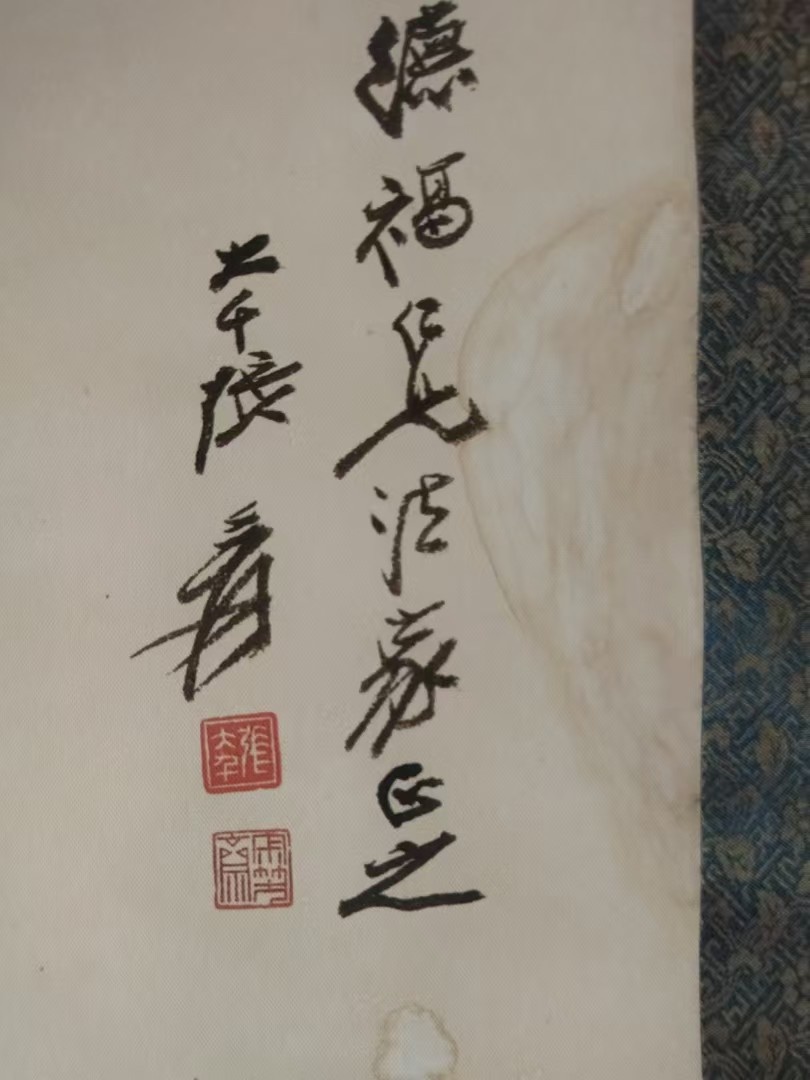 德福仁兄法家正之
大千張爰
張大千